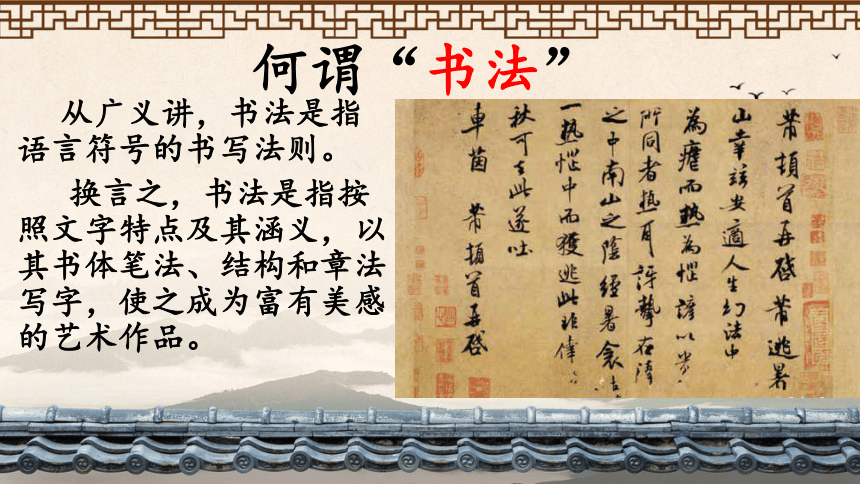 何谓“书法”
从广义讲，书法是指
语言符号的书写法则。
换言之，书法是指按
照文字特点及其涵义，以
其书体笔法、结构和章法
写字，使之成为富有美感
的艺术作品。
芾頓首再啓芾逃暑
山幸茲安適人生幻法中
為虐而熱為惱諺以貴
所同者熱耳訝挚在陰
之中南山之陰經暑衾
一熱惱中而獲逃此非
秋可去此遂吐
車茵 芾頓首再啓